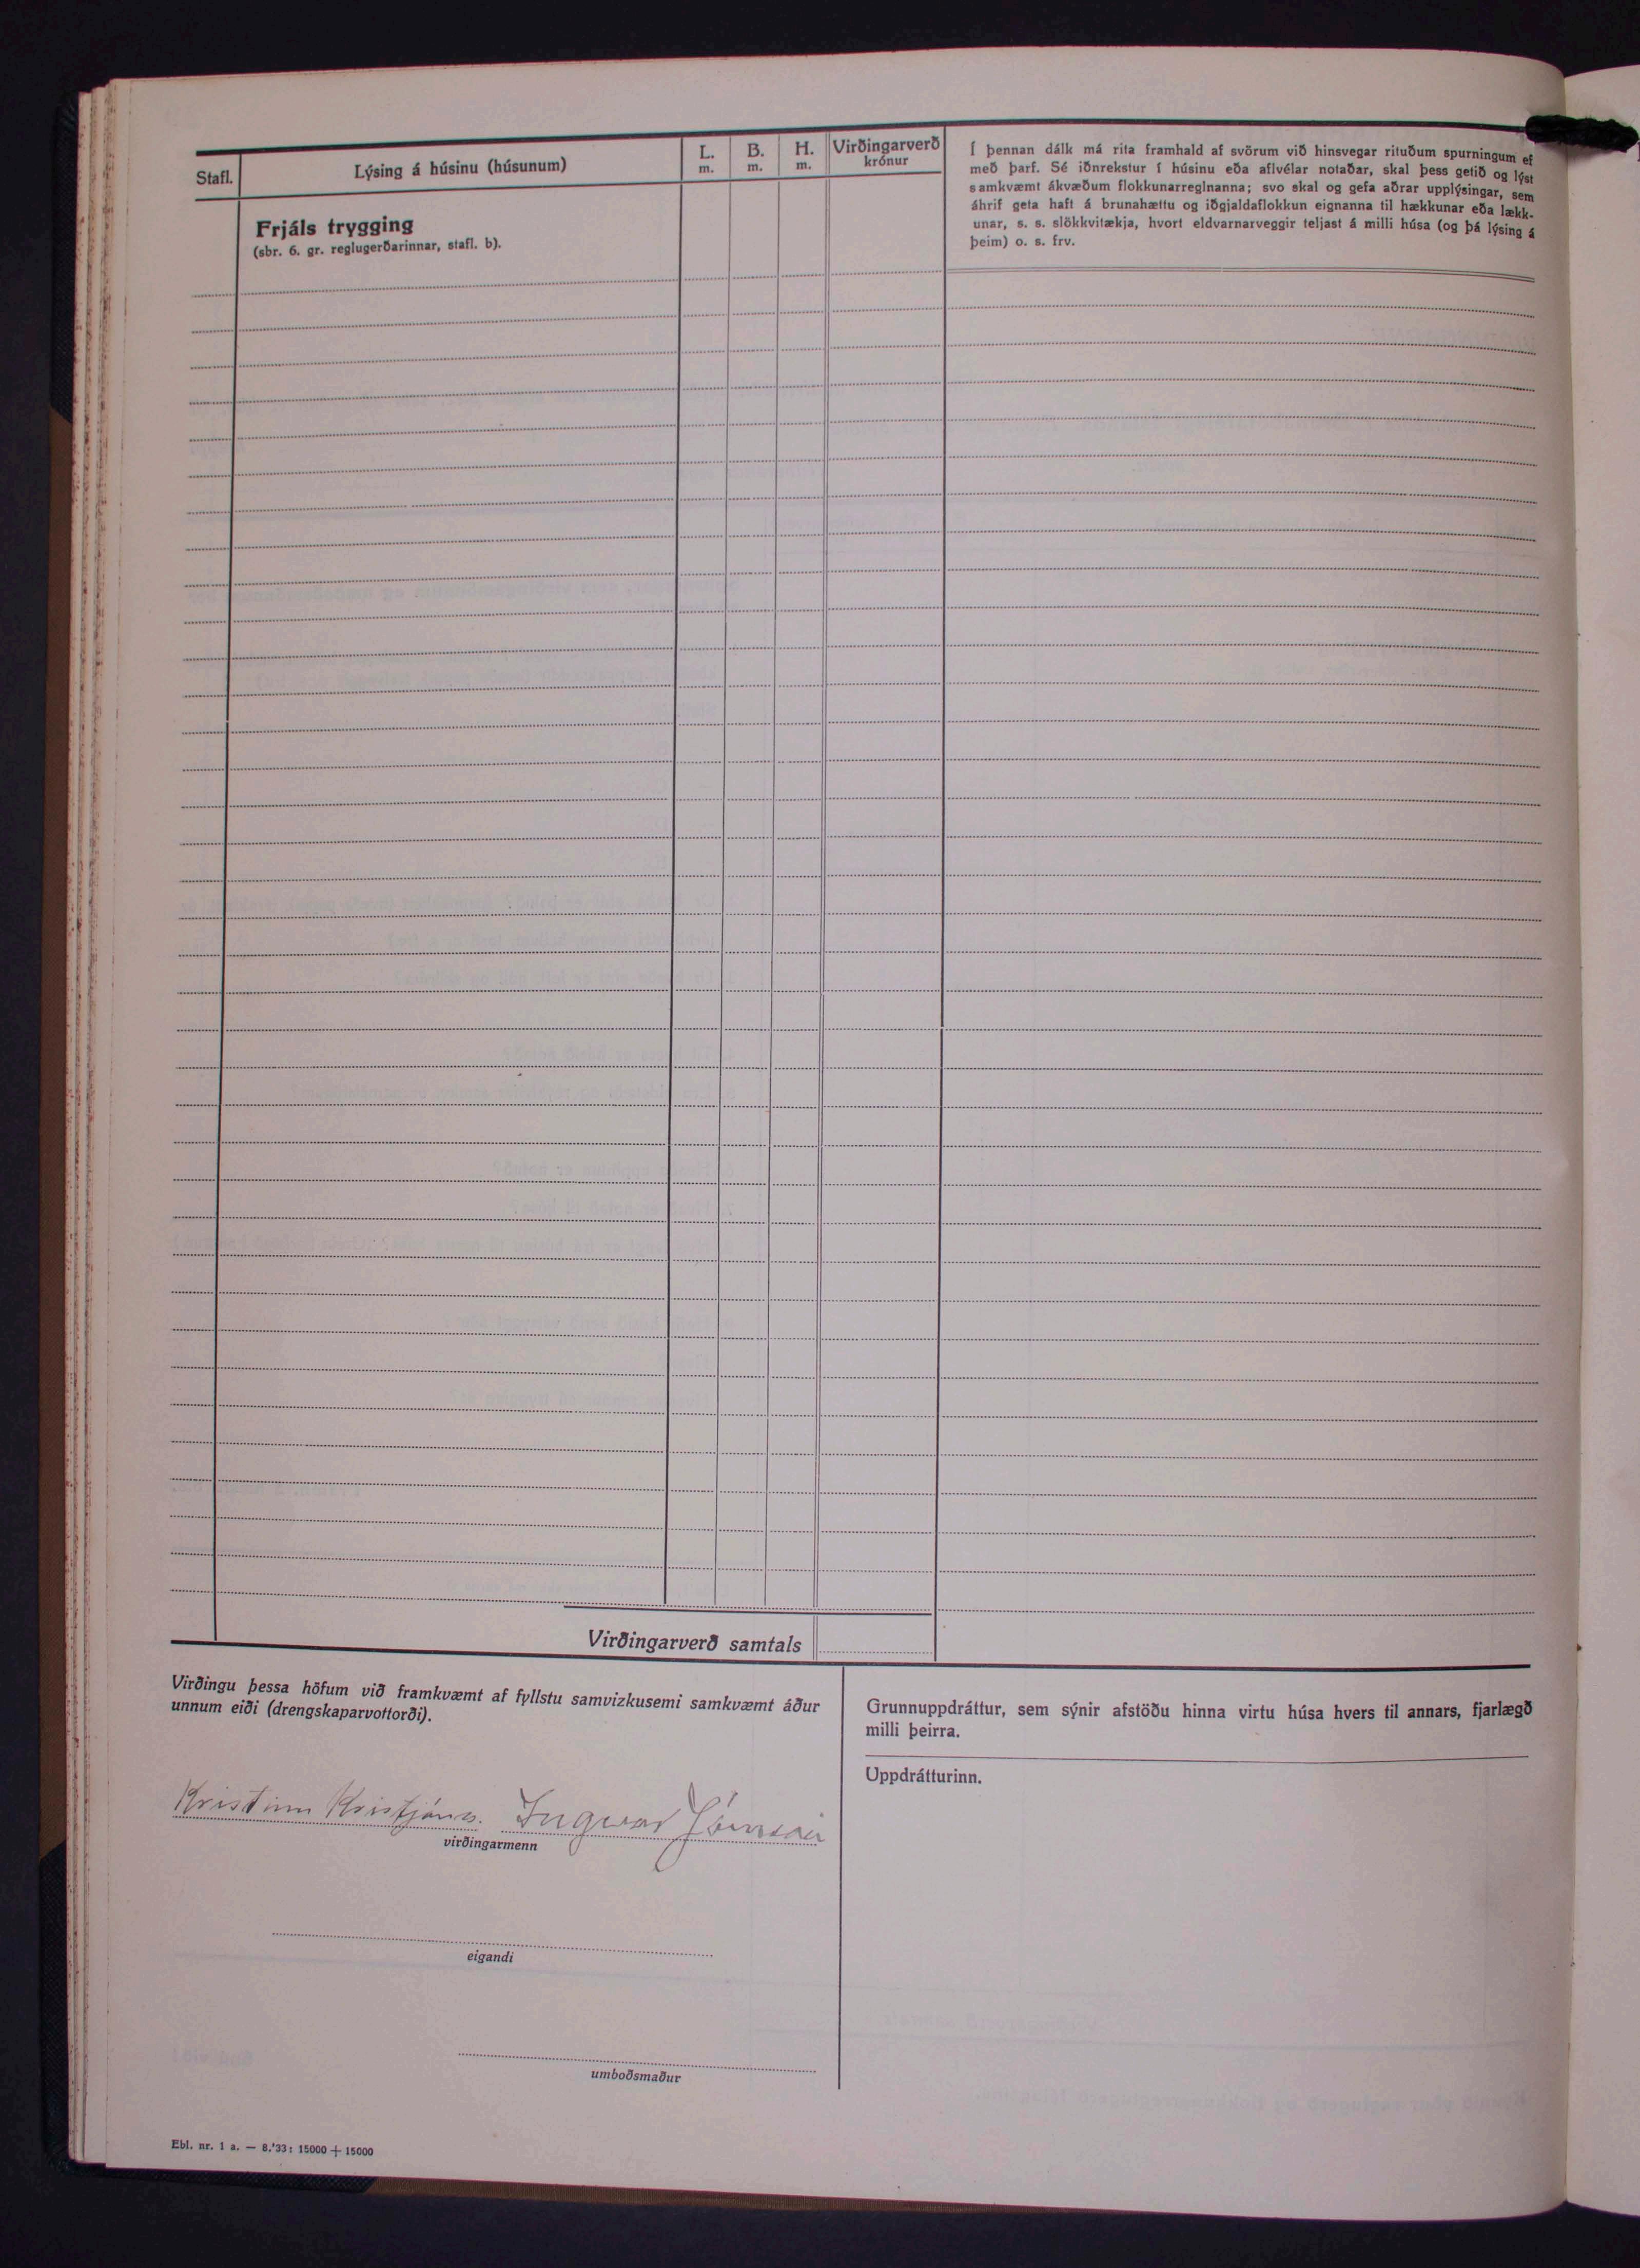 Stafl.
Lýsing á húsinu (húsunum)
L.
m.
B.
m.
H.
m.
Virðingarverð
krónur
Í þennan dálk má rita framhald af svörum við hinsvegar rituðum spurningum ef
með þarf. Sé iðnrekstur í húsinu eða aflvélar notaðar, skal þess getið og lýst
samkvæmt ákvæðum flokkunarreglnanna; svo skal og gefa aðrar upplýsingar, sem
áhrif geta haft á brunahættu og iðgjaldaflokkun eignanna til hækkunar eða lækk-
unar, s. s. slökkvitækja, hvort eldvarnarveggir teljast á milli húsa (og þá lýsing á
þeim) o. s. frv.
Frjáls trygging
(sbr. 6. gr. reglugerðarinnar, stafl. b).
Virðingarverð samtals
Virðingu þessa höfum við framkvæmt af fyllstu samvizkusemi samkvæmt áður
unnum eiði (drengskaparvottorði).
Kristinn Kristjáns. Ingvar Jónsson
virðingarmenn
eigandi
umboðsmaður
Grunnuppdráttur, sem sýnir afstöðu hinna virtu húsa hvers til annars, fjarlægð
milli þeirra.
Uppdrátturinn.
Ebl. nr. 1 a. — 8.'33: 15000 + 15000